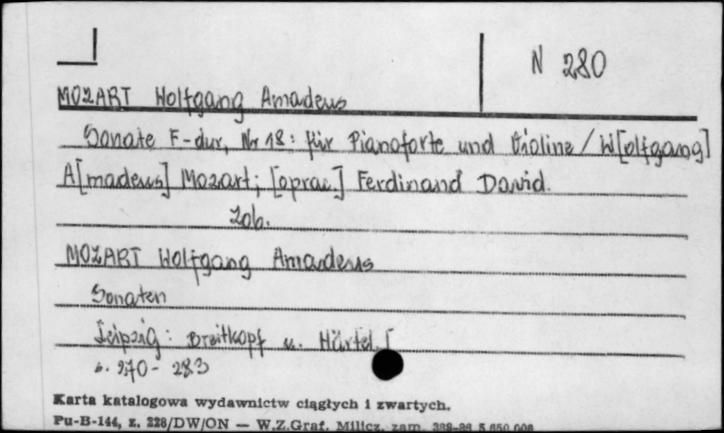 N 280
MOZART Wolfgang Amadeus
Sonate F-dur, Nr 18 : für Pianoforte und Violine / W[olfgang]
A[madeus] Mozart ; [oprac.] Ferdinand David.
Zob.
MOZART Wolfgang Amadeus
Sonaten
Leipzig : Breitkopf u. Härtel [
s. 270 - 283
Karta katalogowa wydawnictw ciągłych i zwartych.
Pu-B-144, z. 228/DW/ON — W.Z.Graf. Milicz, zam.